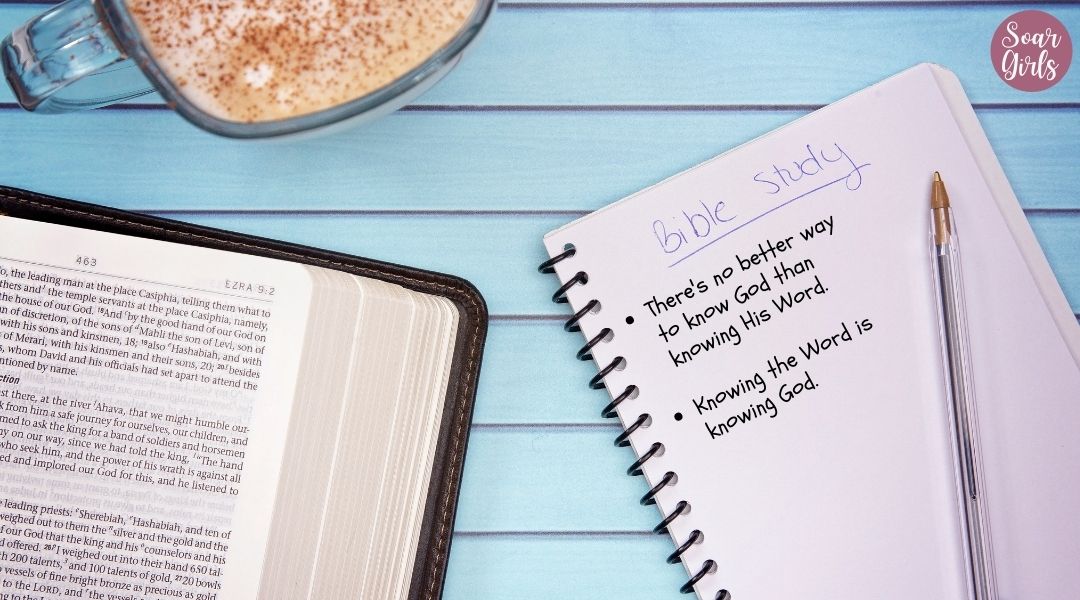 Soar
Girls
Bible Study
• There's no better way
to know God than
knowing His Word.
• Knowing the Word is
knowing God.
463
EZRA 9:2
o, the leading man at the place Casiphia, telling them what to
thers and the temple servants at the place Casiphia, namely,
the house of our God. 18And by the good hand of our God on
n of discretion, of the sons of Mahli the son of Levi, son of
with his sons and kinsmen, 18; 19also Hashabiah, and with
of Merari, with his kinsmen and their sons, 20; 20besides
, whom David and his officials had set apart to attend the
ntioned by name.
ction
st there, at the river Ahava, that we might humble our-
k from him a safe journey for ourselves, our children, and
med to ask the king for a band of soldiers and horsemen
my on our way, since we had told the king, "The hand
who seek him, and the power of his wrath is against all
ed and implored our God for this, and he listened to
leading priests: Sherebiah, Hashabiah, and ten of
weighed out to them the silver and the gold and the
f our God that the king and his counselors and his
d offered. 26I weighed out into their hand 650 tal-
th 200 talents, and 100 talents of gold, 2720 bowls
vessels of fine bright bronze as precious as gold
to the LORD, and the vessels